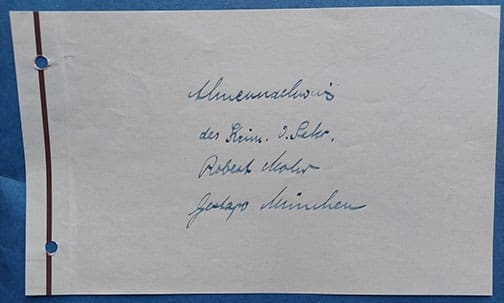 Ahnennachweis
des Krim. O. Sekr.
Robert Mohr
Gestapo München